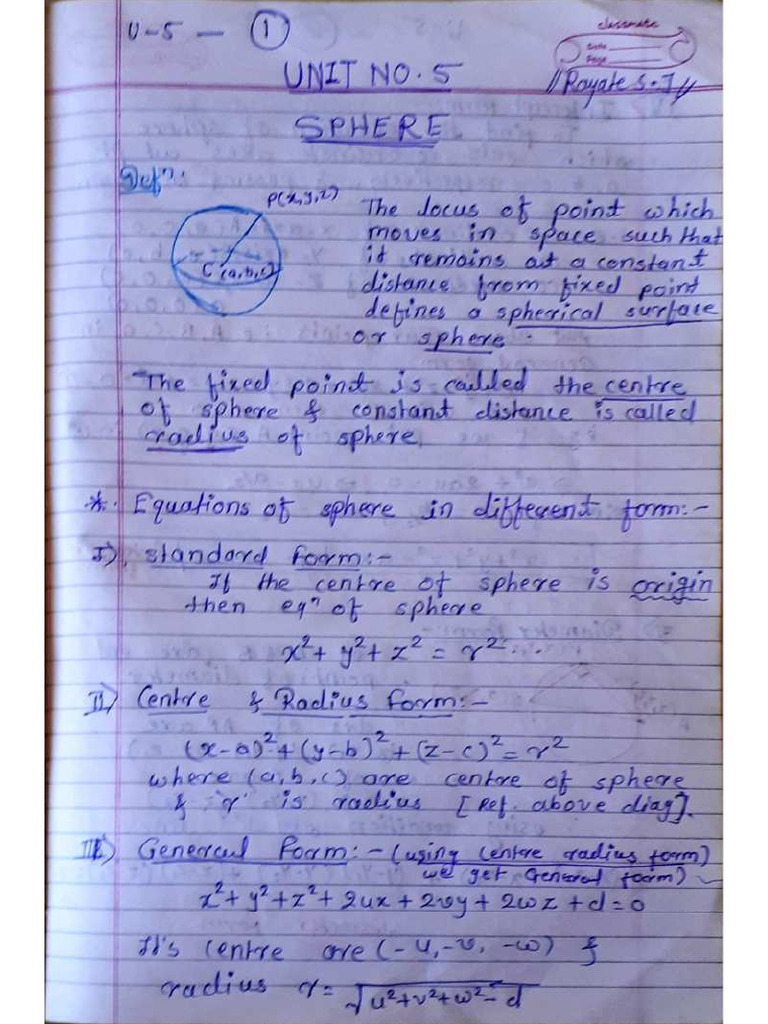 U-5 — 1
classmate
Date
Page
UNIT NO. 5
// Rayate S.J //
SPHERE
Defⁿ:
P(x,y,z)
C (a,b,c)
The locus of point which
moves in space such that
it remains at a constant
distance from fixed point
defines a spherical surface
or sphere.
The fixed point is called the centre
of sphere & constant distance is called
radius of sphere.
*. Equations of sphere in different form:-
I) standard form:-
If the centre of sphere is origin
then eqⁿ of sphere
x² + y² + z² = r²
II) Centre & Radius form:-
(x-a)² + (y-b)² + (z-c)² = r²
where (a,b,c) are centre of sphere
& 'r' is radius [Ref. above diag].
III) General Form:- (using centre radius form)
we get General form)
x² + y² + z² + 2ux + 2vy + 2wz + d = 0
It's centre are (-u, -v, -w) &
radius r = √u² + v² + w² - d